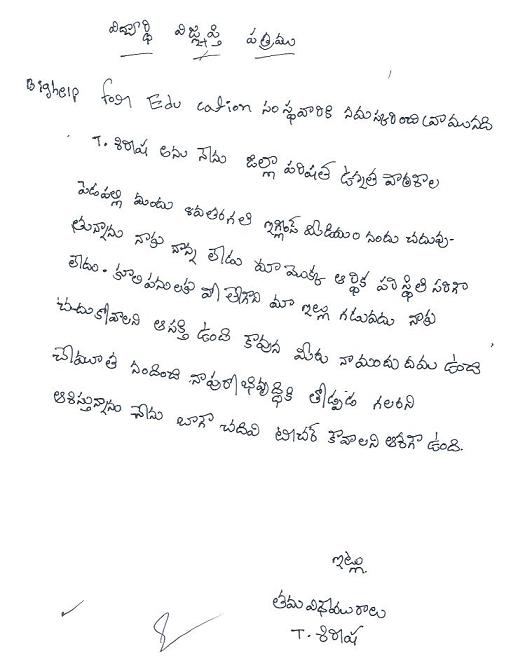 విద్యార్థి విజ్ఞప్తి పత్రము
Bighelp for Edu cation సంస్థవారికి నమస్కరించి వ్రాయునది
T. శిరీష అను నేను జిల్లా పరిషత్ ఉన్నత పాఠశాల
పెదపల్లి నందు 8వతరగతి ఇంగ్లీష్ మీడియం నందు చదువు-
తున్నాను నాకు నాన్న లేడు మా యొక్క ఆర్థిక పరిస్థితి సరిగా
లేదు. కూలిపనులకు పోతేగాని మా ఇల్లు గడువదు నాకు
చదుకోవాలని ఆసక్తి ఉంది కావున మీరు నాయందు దయ ఉంచి
చేయూత నందించి నాపురాభివృద్ధికి తోడ్పడ గలరని
ఆశిస్తున్నాను నేను బాగా చదివి టీచర్ కావాలని ఆశగా ఉంది.
ఇట్లు
తమ విధేయురాలు
T. శిరీష